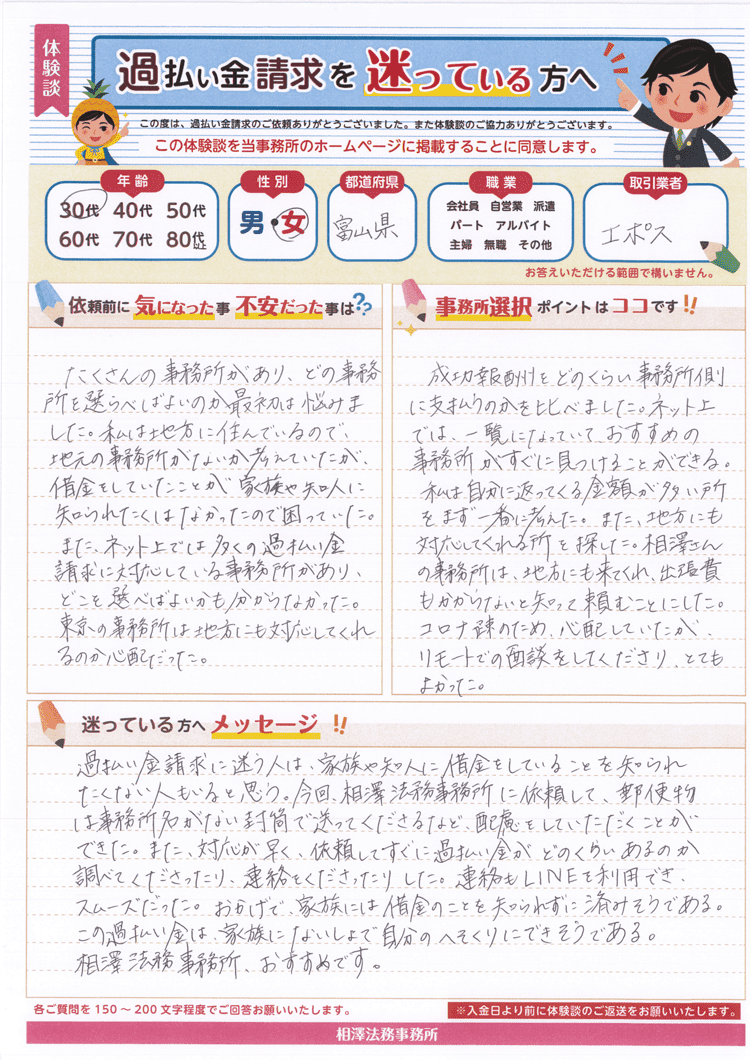 体験談
過払い金請求を迷っている方へ
この度は、過払い金請求のご依頼ありがとうございました。また体験談のご協力ありがとうございます。
この体験談を当事務所のホームページに掲載することに同意します。
年齢
30代 40代 50代
60代 70代 80代以上
性別
男・女
都道府県
富山県
職業
会社員 自営業 派遣
パート アルバイト
主婦 無職 その他
取引業者
エポス
お答えいただける範囲で構いません。
依頼前に気になった事 不安だった事は??
たくさんの事務所があり、どの事務
所を選らべばよいのか最初は悩みま
した。私は地方に住んでいるので、
地元の事務所がないか考えていたが、
借金をしていたことが家族や知人に
知られたくはなかったので困っていた。
また、ネット上では多くの過払い金
請求に対応している事務所があり、
どこを選べばよいかも分からなかった。
東京の事務所は地方にも対応してくれ
るのか心配だった。
事務所選択ポイントはココです!!
成功報酬をどのくらい事務所側
に支払うのかを比べました。ネット上
では、一覧になっていておすすめの
事務所がすぐに見つけることができる。
私は自分に返ってくる金額が多い所
をまず一番に考えた。また、地方にも
対応してくれる所を探した。相澤さん
の事務所は、地方にも来てくれ、出張費
もかからないと知って頼むことにした。
コロナ禍のため、心配していたが、
リモートでの面談をしてくださり、とても
よかった。
迷っている方へメッセージ!!
過払い金請求に迷う人は、家族や知人に借金をしていることを知られ
たくない人もいると思う。今回、相澤法務事務所に依頼して、郵便物
は事務所名がない封筒で送ってくださるなど、配慮をしていただくことが
できた。また、対応が早く、依頼してすぐに過払い金がどのくらいあるのか
調べてくださったり、連絡をくださったりした。連絡もLINEを利用でき、
スムーズだった。おかげで、家族には借金のことを知られずに済みそうである。
この過払い金は、家族にないしょで自分のへそくりにできそうである。
相澤法務事務所、おすすめです。
各ご質問を150～200文字程度でご回答お願いいたします。
※入金日より前に体験談のご返送をお願いいたします。
相澤法務事務所